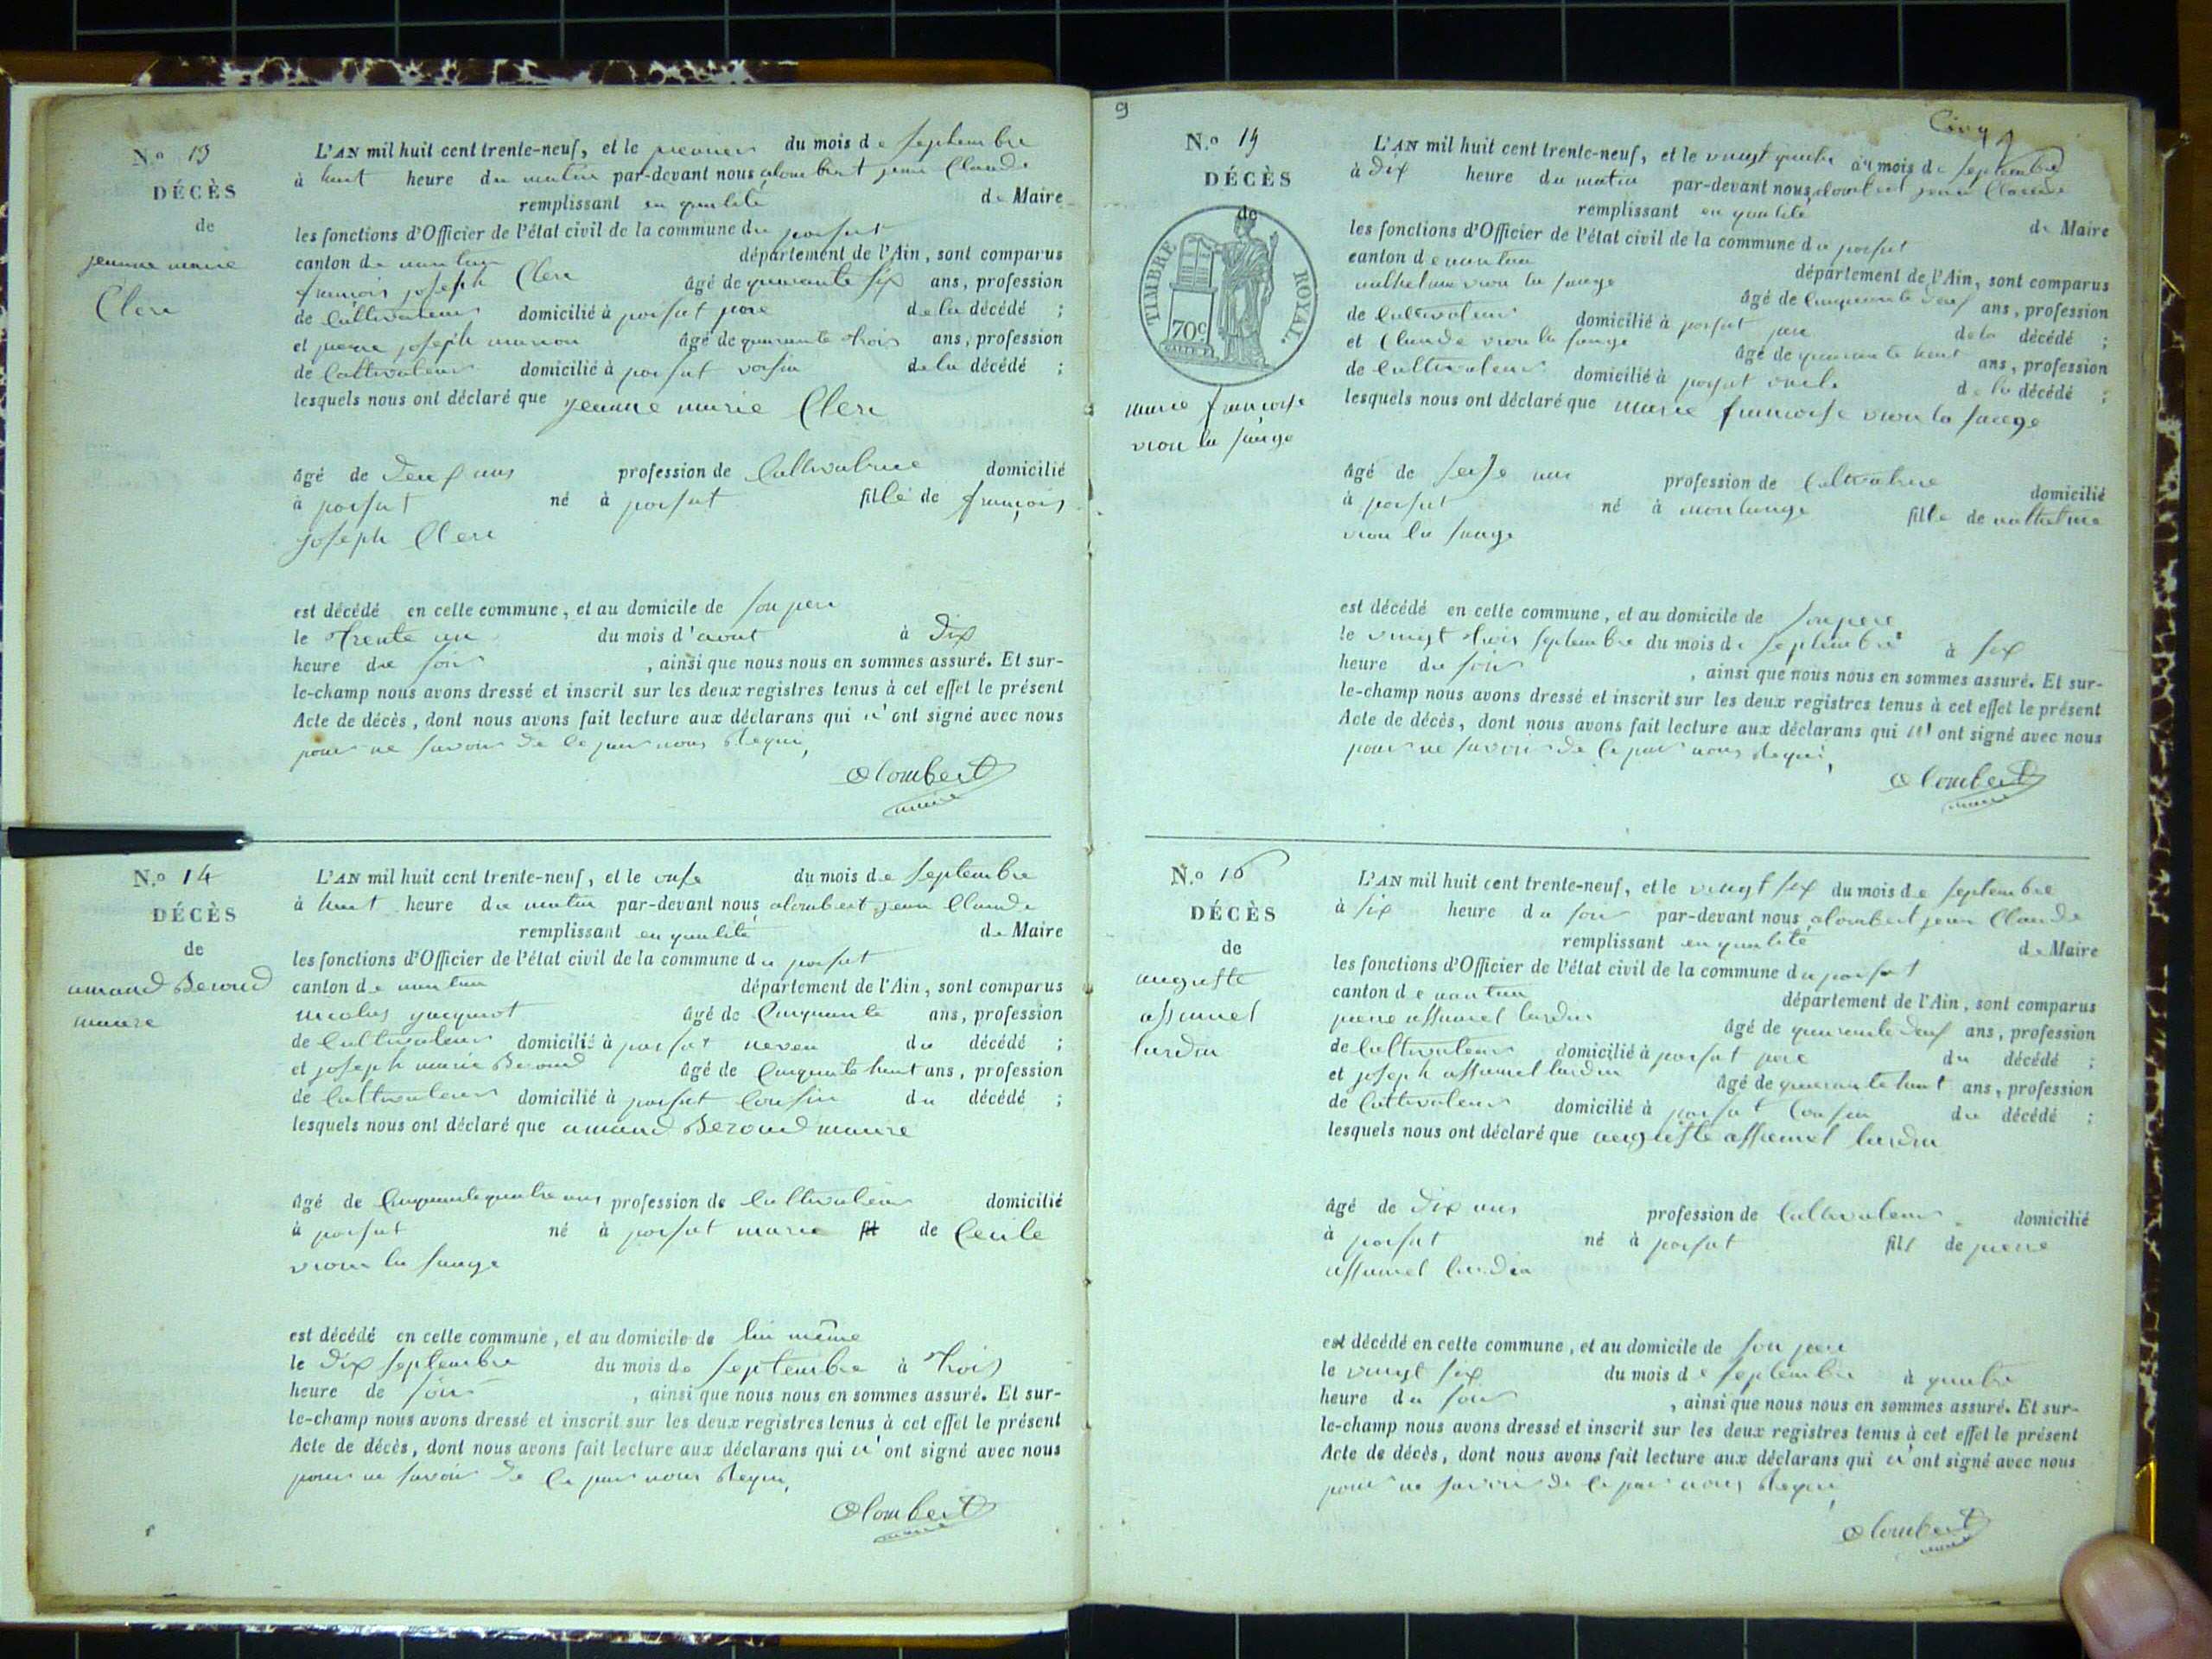 N.º 13
DÉCÈS
de
jeanne marie
Clerc
L'AN mil huit cent trente-neuf, et le premier du mois de septembre
à huit heure du matin par-devant nous alombert jean Claude
remplissant en qualité de Maire
les fonctions d'Officier de l'état civil de la commune du poisat
canton de nantua département de l'Ain, sont comparus
françois joseph Clerc âgé de quarante six ans, profession
de Cultivateur domicilié à poisat pere de la décédé ;
et pierre joseph âgé de quarante trois ans, profession
de Cultivateur domicilié à poisat voisin de la décédé ;
lesquels nous ont déclaré que jeanne marie Clerc
âgé de deux ans profession de Cultivatrice domicilié
à poisat né à poisat fille de françois
joseph Clerc
est décédé en cette commune, et au domicile de son pere
le trente un du mois d'aout à dix
heure du soir , ainsi que nous nous en sommes assuré. Et sur-
le-champ nous avons dressé et inscrit sur les deux registres tenus à cet effet le présent
Acte de décès, dont nous avons fait lecture aux déclarans qui n'ont signé avec nous
pour ne savoir de ce par nous requi,
Alombert
maire
N.º 14
DÉCÈS
de
amand Beroud
maure
L'AN mil huit cent trente-neuf, et le onse du mois de septembre
à huit heure du matin par-devant nous alombert jean Claude
remplissant en qualité de Maire
les fonctions d'Officier de l'état civil de la commune du poisat
canton de nantua département de l'Ain, sont comparus
nicolas jacquiot âgé de Cinquante ans, profession
de Cultivateur domicilié à poisat neveu du décédé ;
et joseph marie Beroud âgé de Cinquante huit ans, profession
de Cultivateur domicilié à poisat Cousin du décédé ;
lesquels nous ont déclaré que amand Beroud maure
âgé de Cinquante quatre ans profession de Cultivateur domicilié
à poisat né à poisat marié fil de Cecile
vion la sauge
est décédé en cette commune, et au domicile de lui même
le dix septembre du mois de septembre à trois
heure de soir , ainsi que nous nous en sommes assuré. Et sur-
le-champ nous avons dressé et inscrit sur les deux registres tenus à cet effet le présent
Acte de décès, dont nous avons fait lecture aux déclarans qui n'ont signé avec nous
pour ne savoir de ce par nous requi,
Alombert
maire
9
Cinq
N.º 15
DÉCÈS
de
TIMBRE ROYAL.
70c
marie françoise
vion la sauge
L'AN mil huit cent trente-neuf, et le vingt quatre du mois de septembre
à dix heure du matin par-devant nous alombert jean Claude
remplissant en qualité de Maire
les fonctions d'Officier de l'état civil de la commune du poisat
canton de nantua département de l'Ain, sont comparus
anthelme vion la sauge âgé de Cinquante deux ans, profession
de Cultivateur domicilié à poisat pere de la décédé ;
et Claude vion la sauge âgé de quarante huit ans, profession
de Cultivateur domicilié à poisat oncle de la décédé ;
lesquels nous ont déclaré que marie françoise vion la sauge
âgé de seise ans profession de Cultivatrice domicilié
à poisat né à montange fille de anthelme
vion la sauge
est décédé en cette commune, et au domicile de son pere
le vingt trois septembre du mois de septembre à six
heure du soir , ainsi que nous nous en sommes assuré. Et sur-
le-champ nous avons dressé et inscrit sur les deux registres tenus à cet effet le présent
Acte de décès, dont nous avons fait lecture aux déclarans qui n'ont signé avec nous
pour ne savoir de ce par nous requi,
Alombert
maire
N.º 16
DÉCÈS
de
auguste
assumel
lurdin
L'AN mil huit cent trente-neuf, et le vingt six du mois de septembre
à six heure du soir par-devant nous alombert jean Claude
remplissant en qualité de Maire
les fonctions d'Officier de l'état civil de la commune du poisat
canton de nantua département de l'Ain, sont comparus
pierre assumel lurdin âgé de quarante deux ans, profession
de Cultivateur domicilié à poisat pere du décédé ;
et joseph assumel lurdin âgé de quarante huit ans, profession
de Cultivateur domicilié à poisat Cousin du décédé ;
lesquels nous ont déclaré que auguste assumel lurdin
âgé de dix ans profession de Cultivateur domicilié
à poisat né à poisat fils de pierre
assumel lurdin
est décédé en cette commune, et au domicile de son pere
le vingt six du mois de septembre à quatre
heure du soir , ainsi que nous nous en sommes assuré. Et sur-
le-champ nous avons dressé et inscrit sur les deux registres tenus à cet effet le présent
Acte de décès, dont nous avons fait lecture aux déclarans qui n'ont signé avec nous
pour ne savoir de ce par nous requi,
Alombert
maire